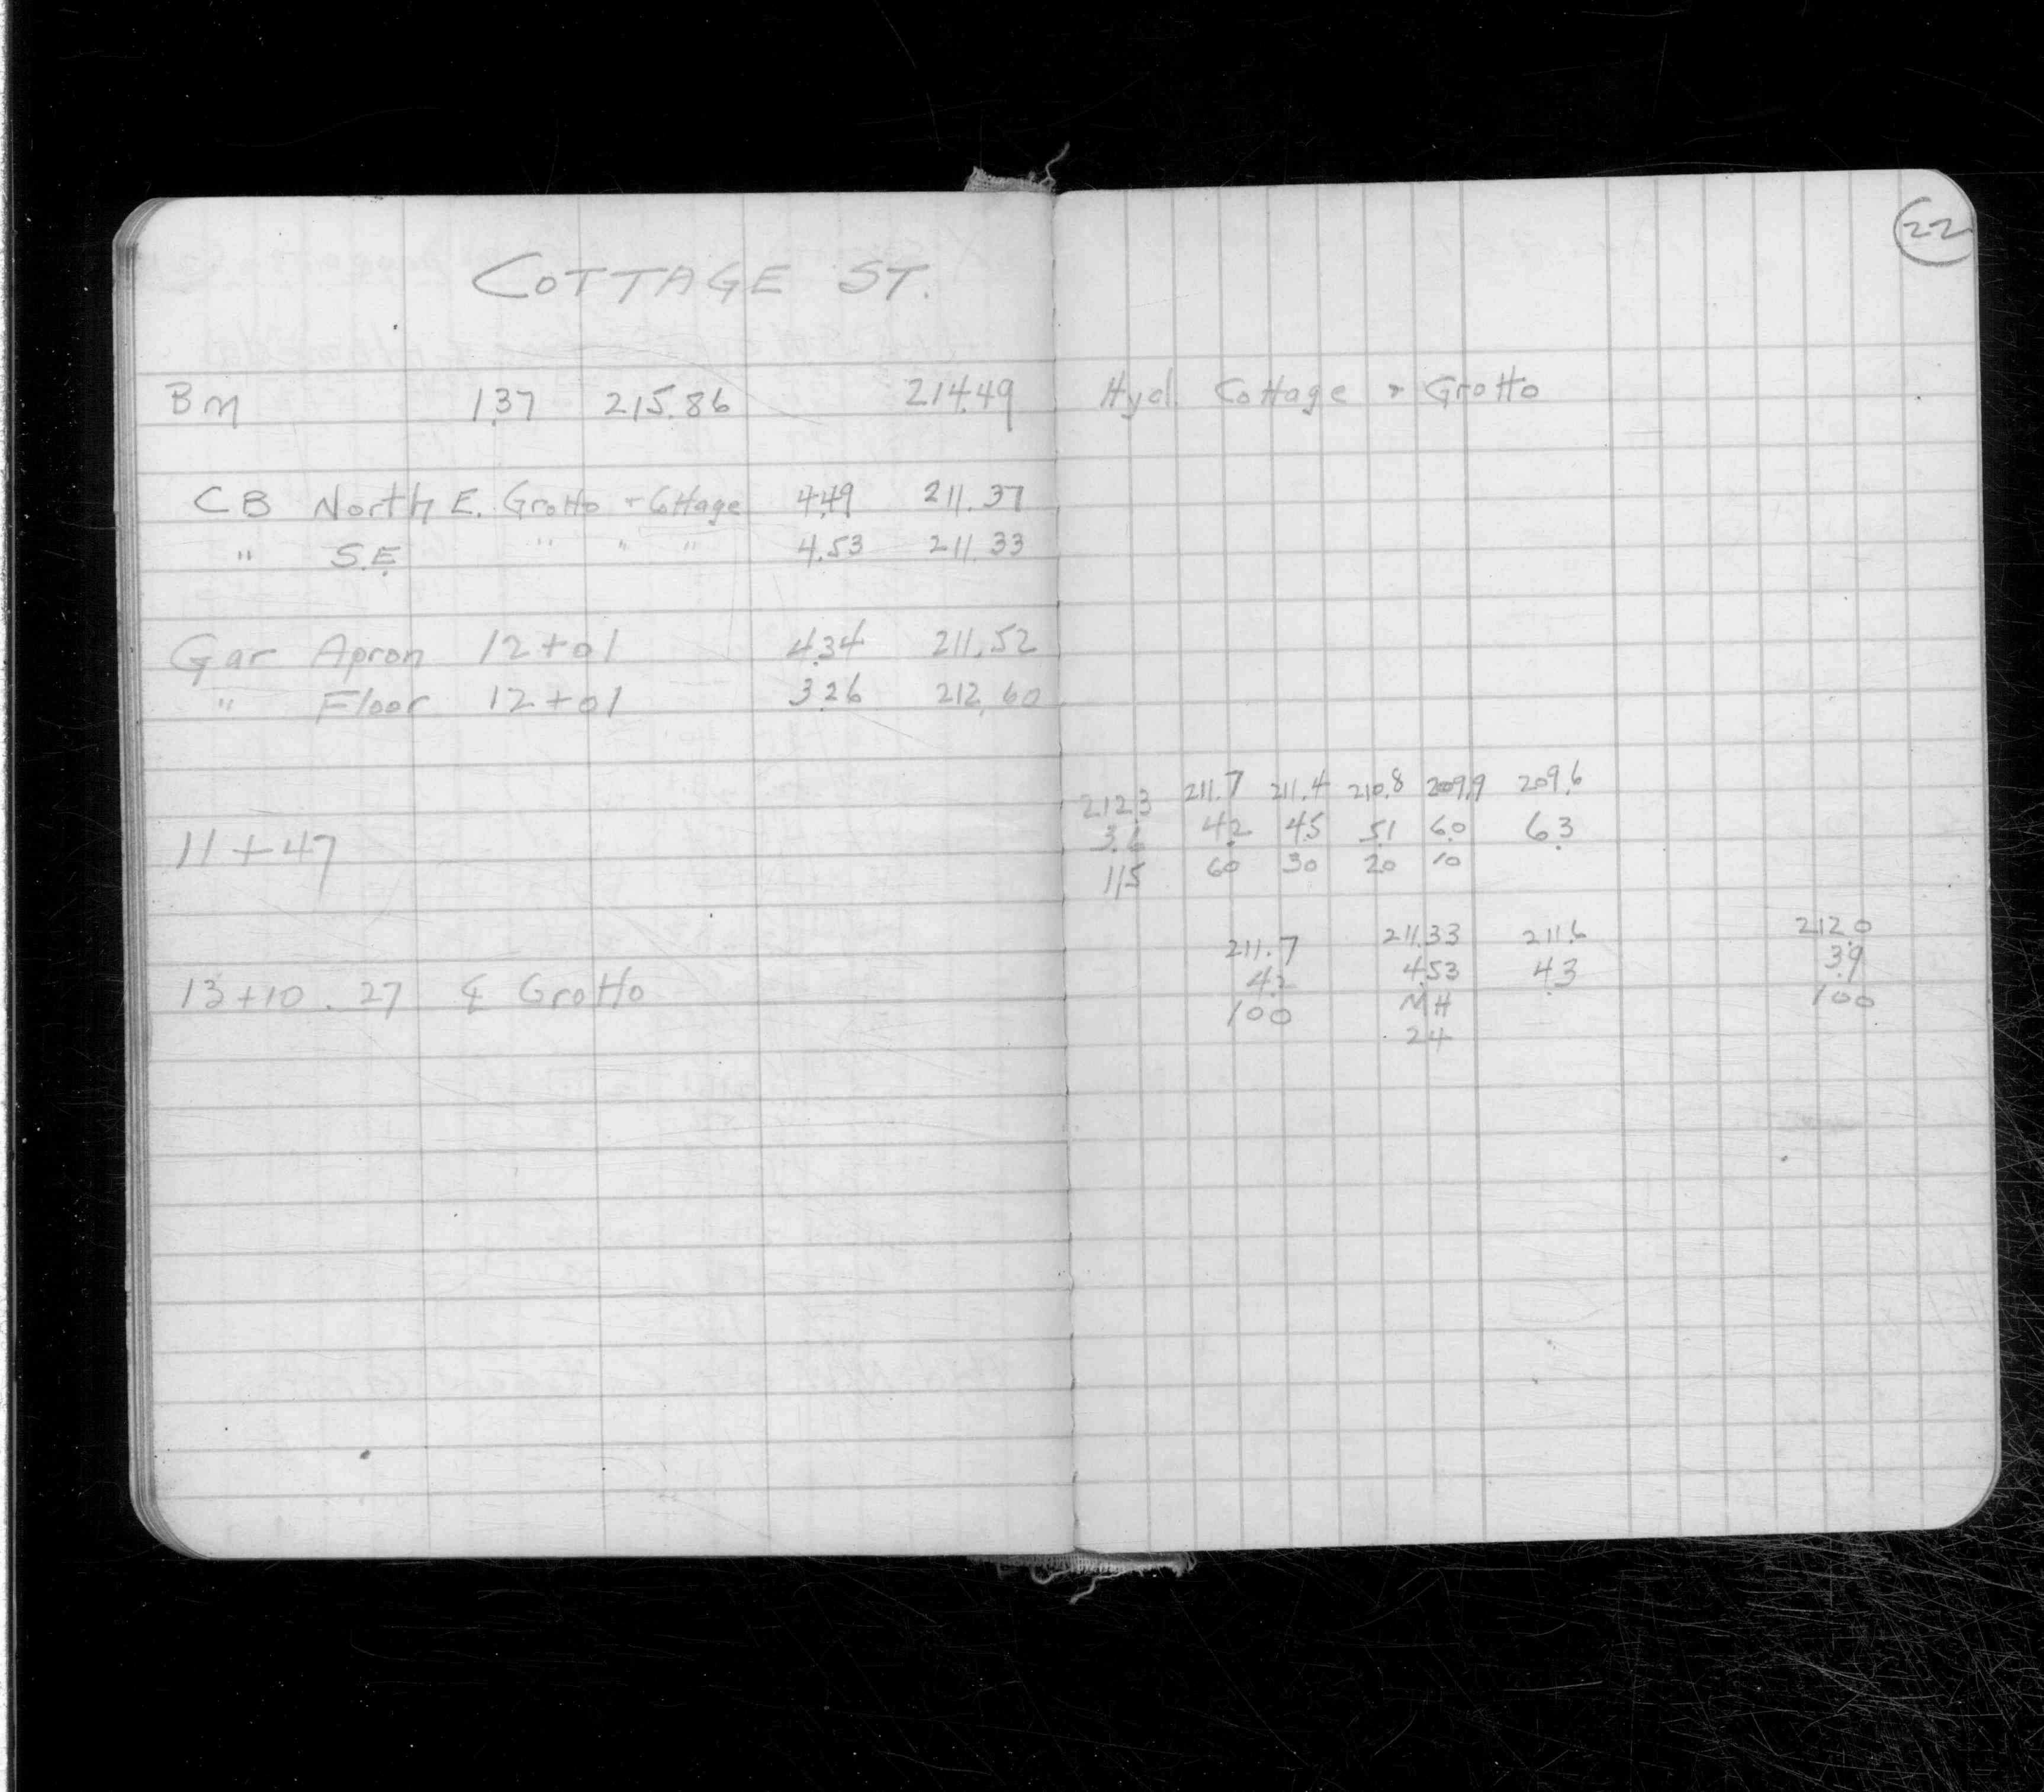 22
COTTAGE ST.
BM 1.37 215.86 214.49 Hyd. Cottage & Grotto
CB North E. Grotto & Cottage 4.49 211.37
" S.E. " " " 4.53 211.33
Gar Apron 12+01 4.34 211.52
" Floor 12+01 3.26 212.60
212.3 211.7 211.4 210.8 209.9 209.6
11+47 3.6 4.2 4.5 5.1 6.0 6.3
115 60 30 20 10
211.7 211.33 211.6 212.0
13+10.27 ℄ Grotto 4.2 4.53 4.3 3.9
100 MH 100
24